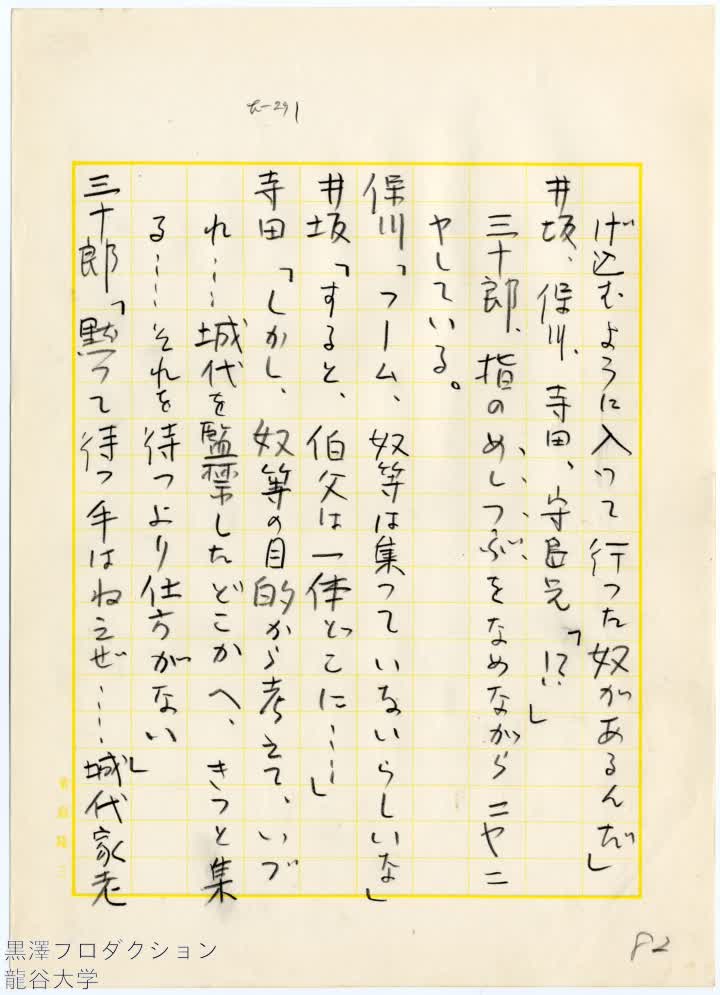 た-291
げ込むように入って行った奴があるんだ」
井坂、保川、寺田、守島兄「!?」
三十郎、指のめしつぶをなめながらニヤニ
ヤしている。
保川「フーム、奴等は集っていないらしいな」
井坂「すると、伯父は一体どこに……」
寺田「しかし、奴等の目的から考えて、いづ
れ……城代を監禁したどこかへ、きっと集
る……それを待つより仕方がない」
三十郎「黙って待つ手はねえぜ……城代家老
82
黒澤プロダクション
龍谷大学